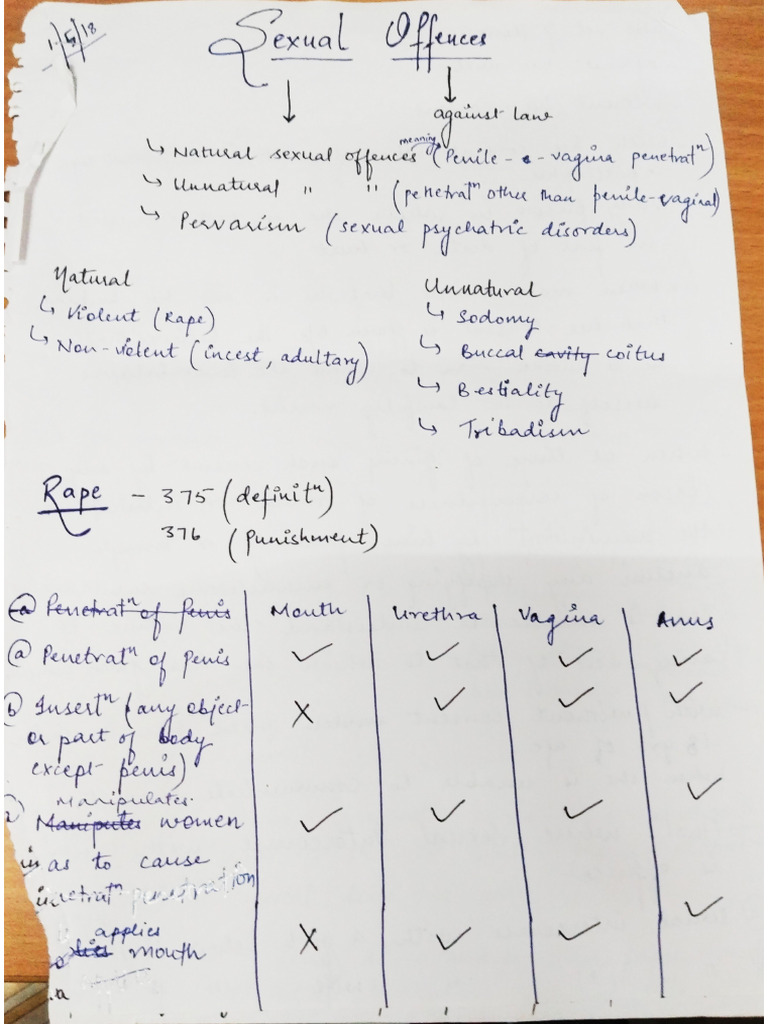 1/5/18
Sexual Offences
against law
meaning
↳ Natural sexual offences (Penile - vagina penetratⁿ)
↳ Unnatural " " (penetratⁿ other than penile-vaginal)
↳ Pervarism (sexual psychatric disorders)
Natural
↳ Violent (Rape)
↳ Non-violent (incest, adultary)
Unnatural
↳ Sodomy
↳ Buccal cavity coitus
↳ Bestiality
↳ Tribadism
Rape - 375 (definitⁿ)
376 (punishment)
(a) Penetratⁿ of penis | Mouth | Urethra | Vagina | Anus
(a) Penetratⁿ of penis ✓ ✓ ✓ ✓
(b) Insertⁿ (any object X ✓ ✓ ✓
or part of body
except penis)
Manipulates
Maniputes women ✓ ✓ ✓ ✓
as to cause
penetration
applies
mouth X ✓ ✓ ✓